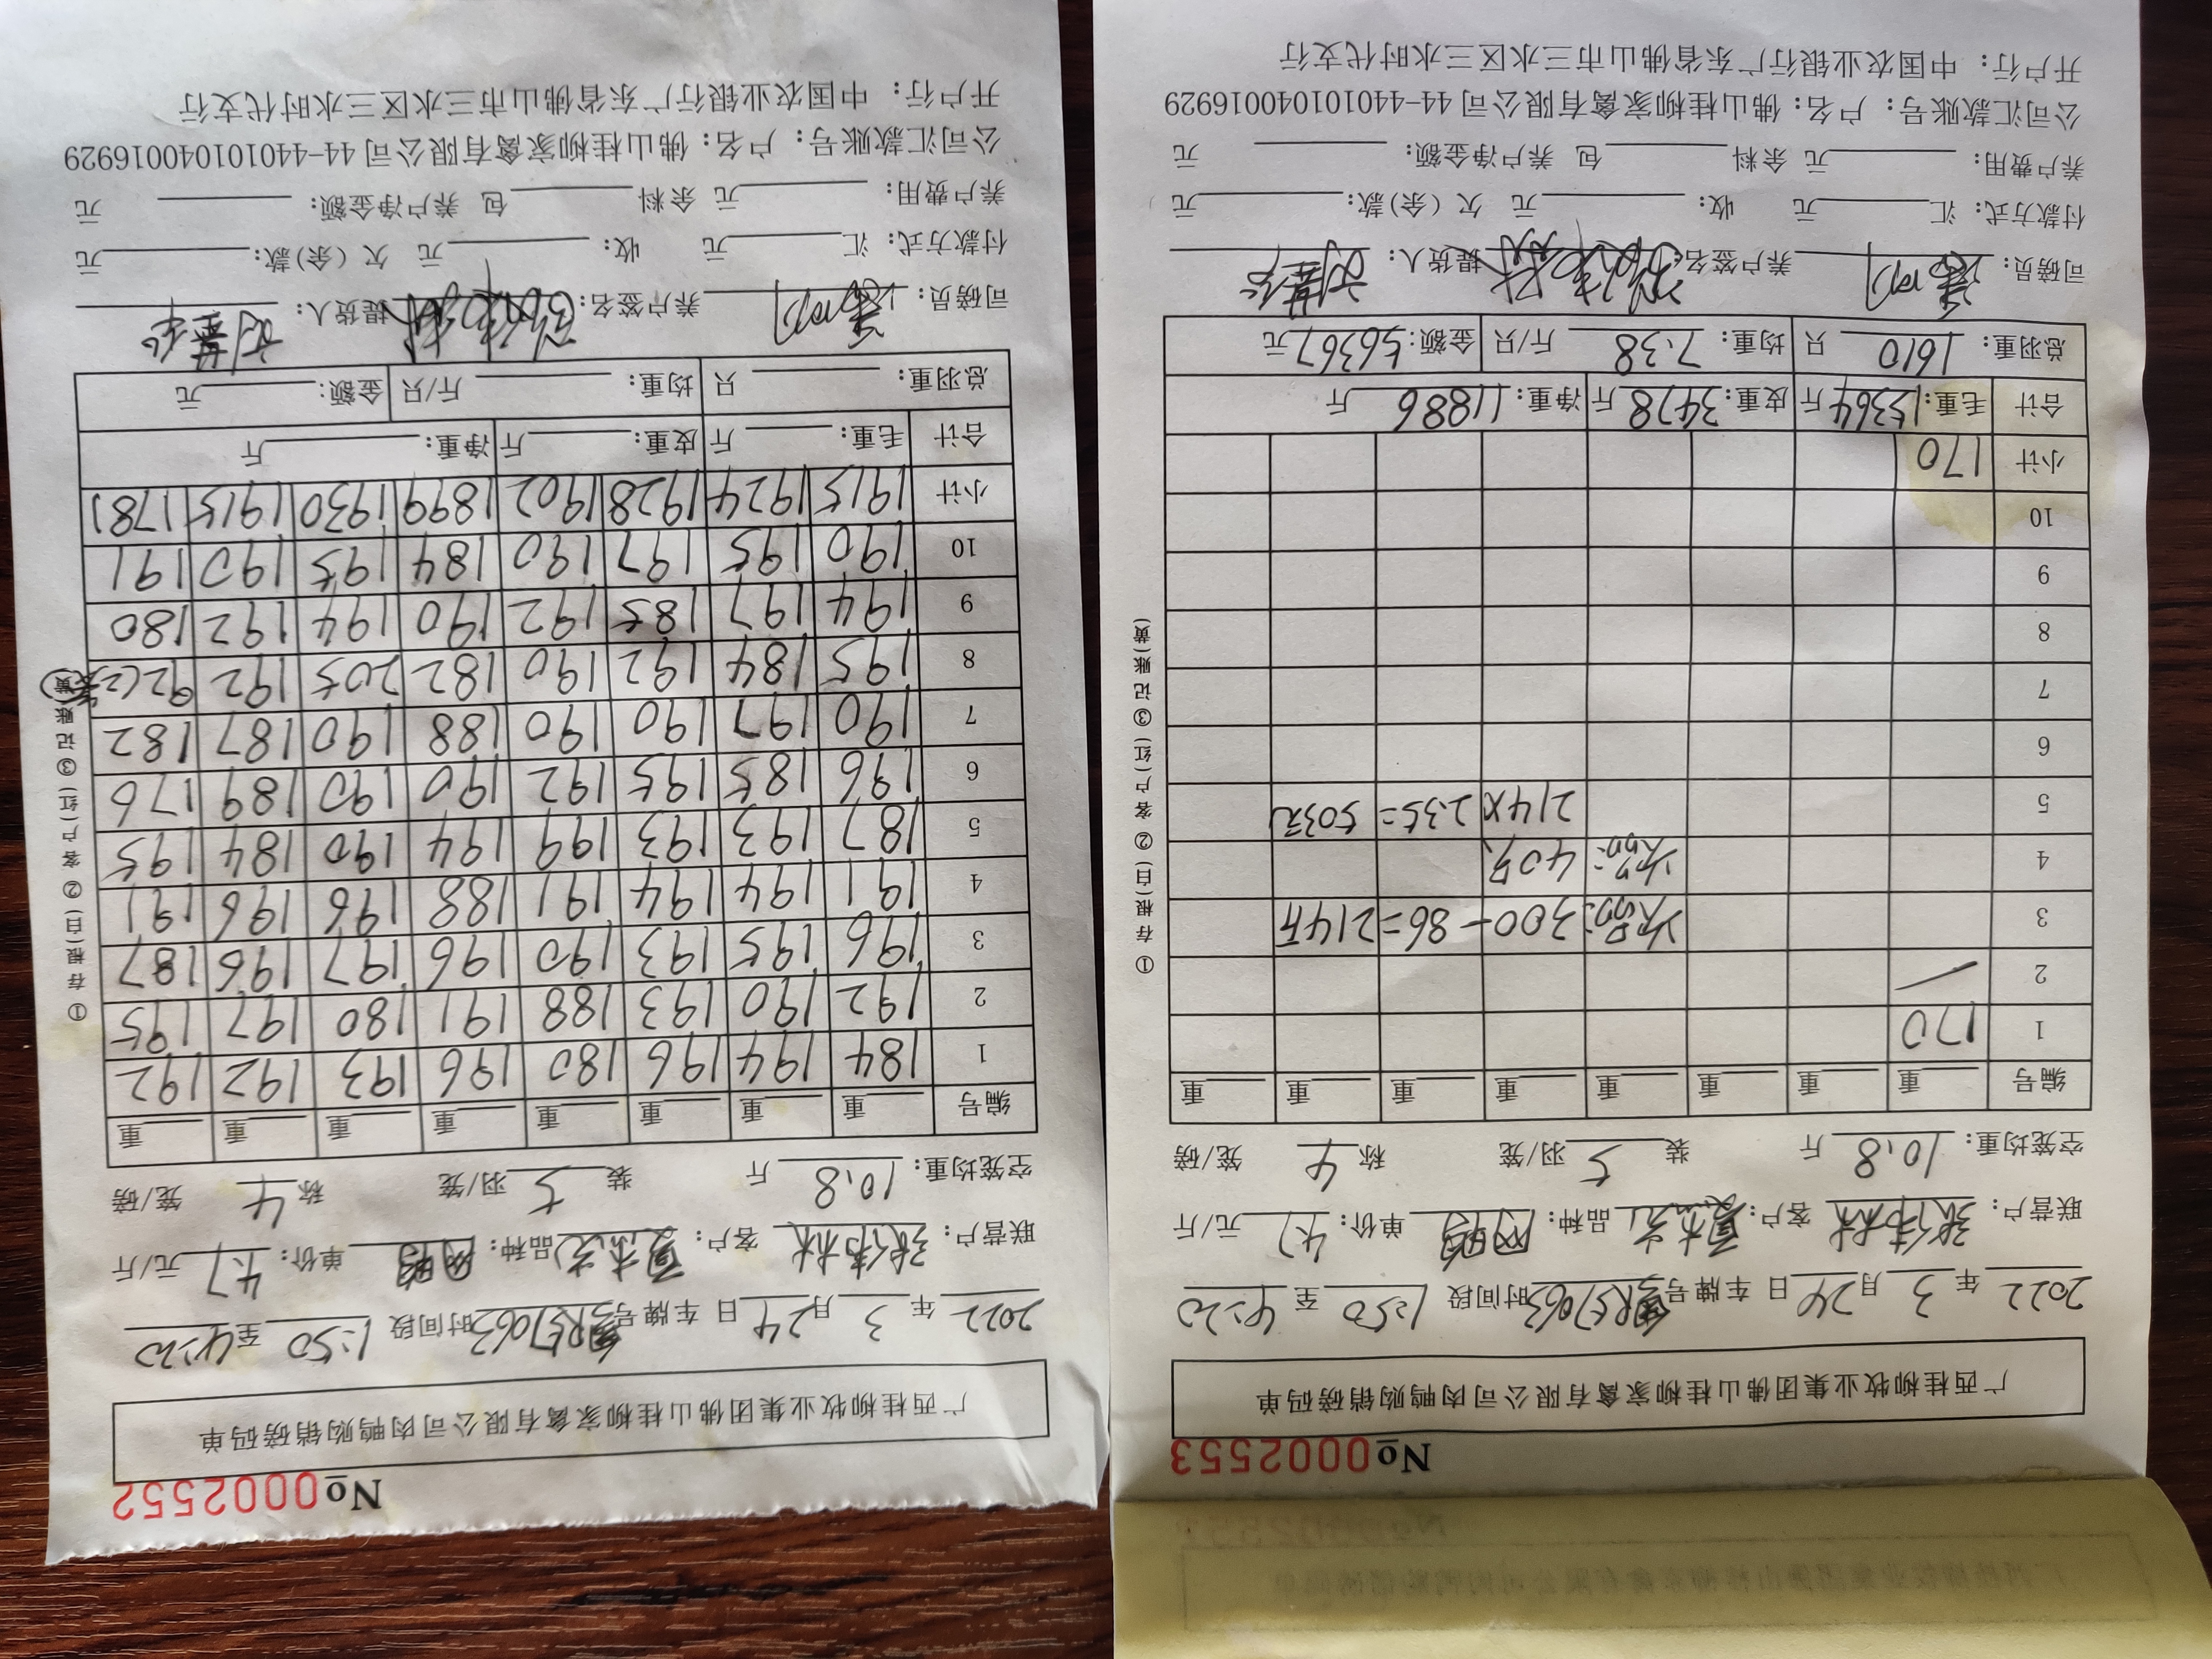 No0002553
广西桂柳牧业集团佛山桂柳家禽有限公司肉鸭购销磅码单
2022年3月24日 车牌号 时间段1:50至4:20
联营户:张伟林 客户: 品种: 单价:4.7元/斤
空笼均重:10.8斤 装5羽/笼 称4笼/磅
编号 重 重 重 重 重 重 重 重
1 170
2
3 次品: 300-86=214斤
4 次品: 40只
5 214×2.35=503元
6
7
8
9
10
小计 170
合计 毛重:15364斤 皮重:3478斤 净重:11886斤
总羽重:1610只 均重:7.38斤/只 金额:56367元
司磅员: 养户签名:张伟林 提货人:
付款方式: 汇 元 收: 元 欠(余)款: 元
养户费用: 元 余料 包 养户净金额: 元
公司汇款账号: 户名:佛山桂柳家禽有限公司 44-440101040016929
开户行: 中国农业银行广东省佛山市三水区三水时代支行
①存根(白)②客户(红)③记账(黄)
No0002552
广西桂柳牧业集团佛山桂柳家禽有限公司肉鸭购销磅码单
2022年3月24日 车牌号 时间段1:50至4:20
联营户:张伟林 客户: 品种: 单价:4.7元/斤
空笼均重:10.8斤 装5羽/笼 称4笼/磅
编号 重 重 重 重 重 重 重 重
1 184 194 196 180 196 193 192 192
2 192 190 193 188 191 180 197 195
3 196 195 193 190 196 197 196 187
4 191 194 194 191 188 196 196 191
5 187 193 193 199 194 190 184 195
6 196 185 195 192 190 190 189 176
7 190 197 190 190 188 190 187 182
8 195 184 192 190 182 205 192 92(2笼)
9 194 197 185 192 190 194 192 180
10 190 195 197 190 184 195 190 191
小计 1915 1924 1928 1902 1899 1930 1915 1781
合计 毛重: 斤 皮重: 斤 净重: 斤
总羽重: 只 均重: 斤/只 金额: 元
司磅员: 养户签名:张伟林 提货人:
付款方式: 汇 元 收: 元 欠(余)款: 元
养户费用: 元 余料 包 养户净金额: 元
公司汇款账号: 户名:佛山桂柳家禽有限公司 44-440101040016929
开户行: 中国农业银行广东省佛山市三水区三水时代支行
①存根(白)②客户(红)③记账(黄)